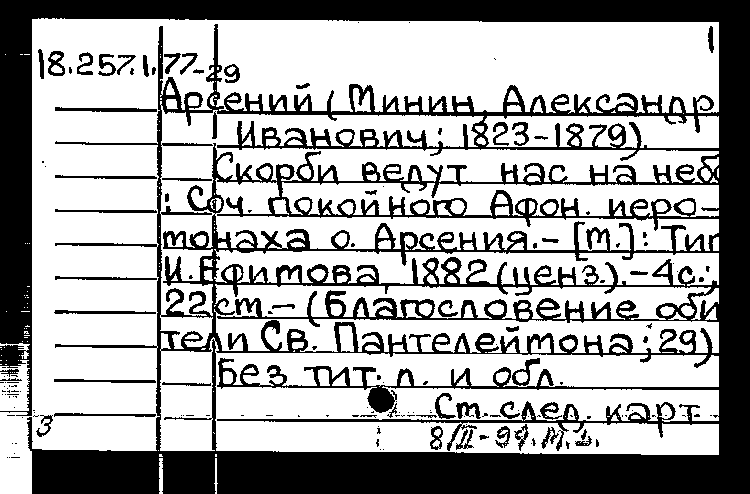 1
18.257.1.77-29
Арсений (Минин, Александр
Иванович; 1823-1879).
Скорби ведут нас на небо
: Соч. покойного Афон. иеро-
монаха о. Арсения.- [М.]: Тип
И.Ефимова, 1882 (ценз.).-4с.;
22см.- (Благословение оби
тели Св. Пантелеймона; 29)
Без тит. л. и обл.
См. след. карт
3
8/II-99.